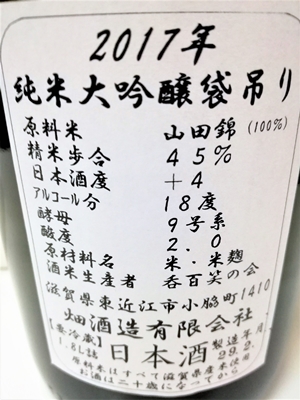 2017年
純米大吟醸袋吊り
原料米 山田錦(100%)
精米歩合 45%
日本酒度 +4
アルコール分 18度
酵母 9号系
酸度 2.0
原材料名 米・米麹
酒米生産者 呑百笑の会
滋賀県東近江市小脇町1410
畑酒造有限会社
【要冷蔵】 日本酒 製造年月
1.8L詰 29.2
原料米はすべて滋賀県産米使用
お酒は二十歳になってから